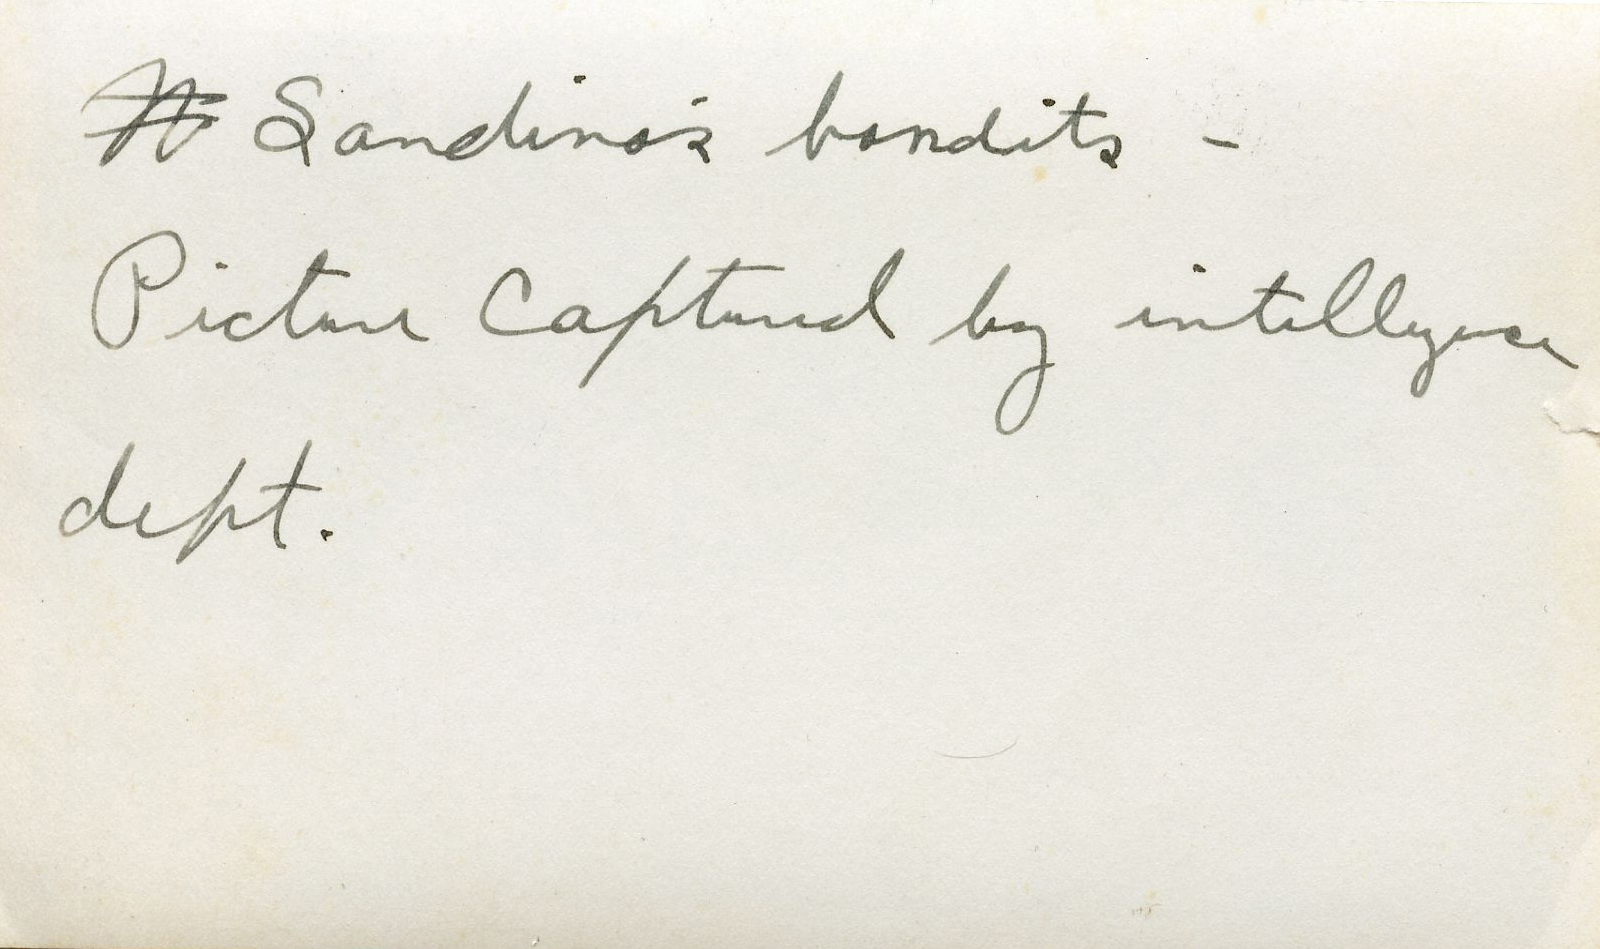 Sandino's bandits -
Picture Captured by intelligence
dept.